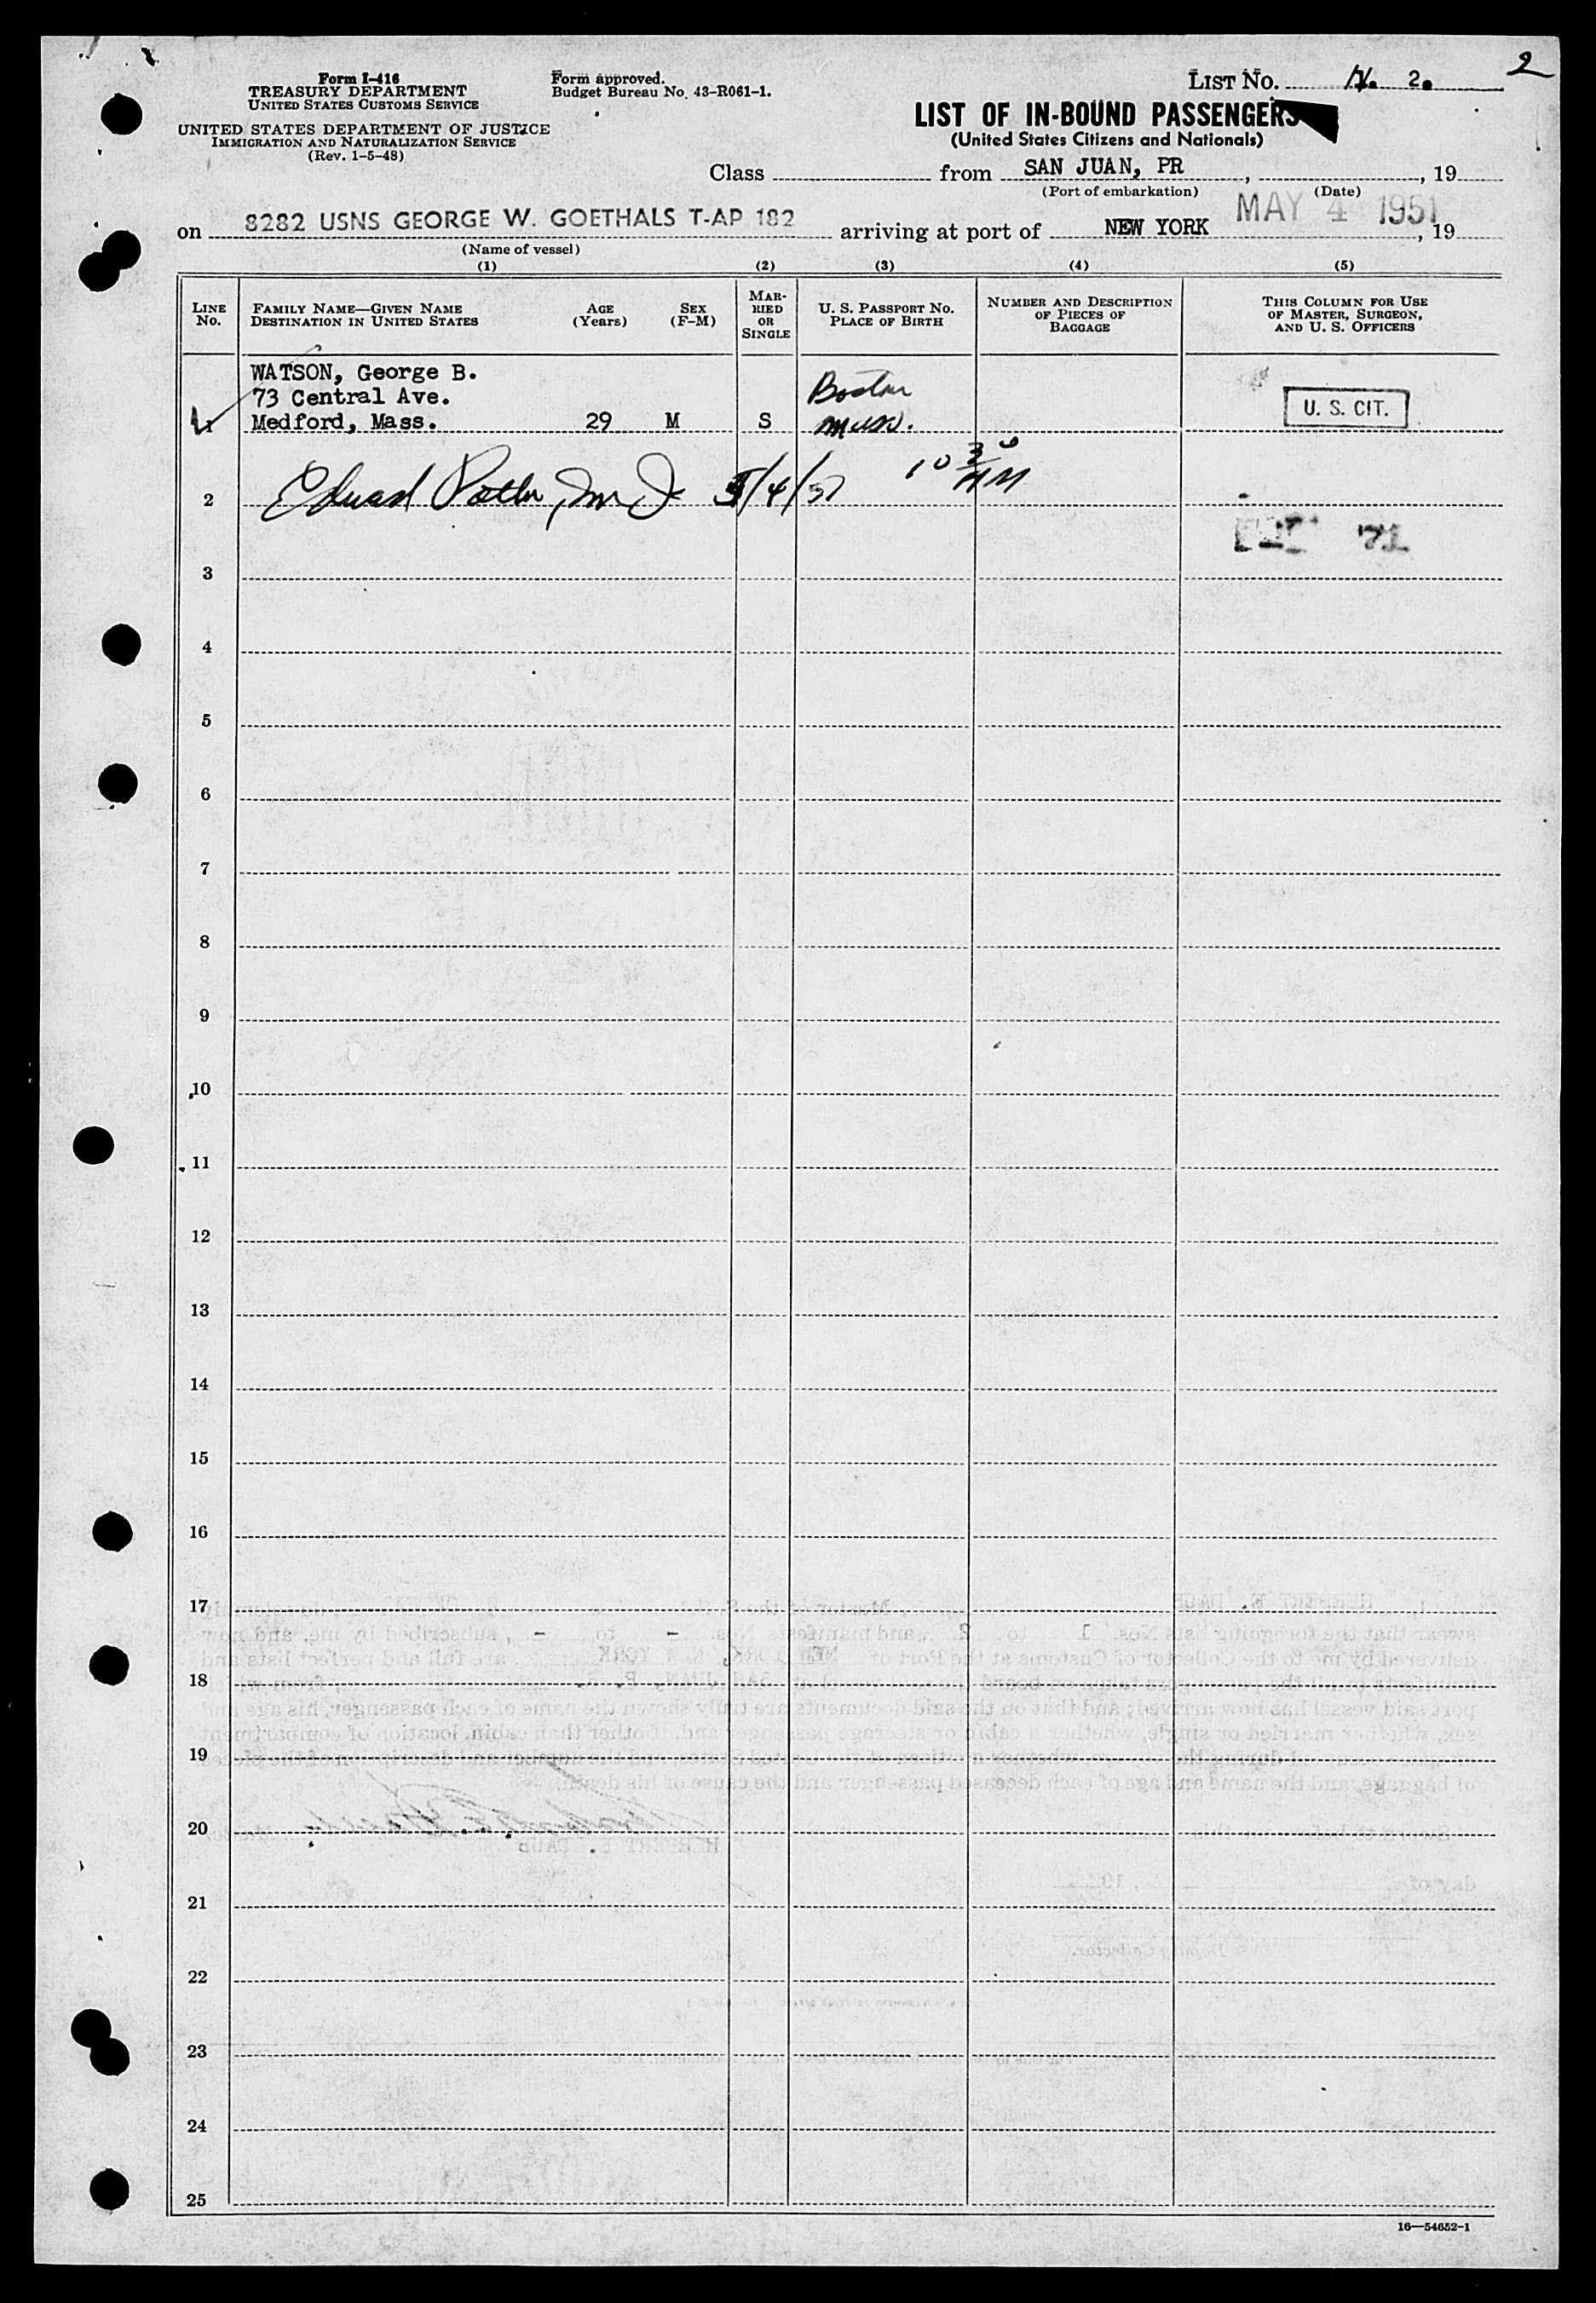 2
Form I-416
TREASURY DEPARTMENT
UNITED STATES CUSTOMS SERVICE
UNITED STATES DEPARTMENT OF JUSTICE
IMMIGRATION AND NATURALIZATION SERVICE
(Rev. 1-5-48)
Form approved.
Budget Bureau No. 43-R061-1.
LIST NO. 2.
LIST OF IN-BOUND PASSENGERS
(United States Citizens and Nationals)
Class from SAN JUAN, PR, , 19
(Port of embarkation) (Date)
on 8282 USNS GEORGE W. GOETHALS T-AP 182 arriving at port of NEW YORK MAY 4 1951, 19
(Name of vessel)
(1) (2) (3) (4) (5)
LINE No.
FAMILY NAME—GIVEN NAME
DESTINATION IN UNITED STATES
AGE
(Years)
SEX
(F-M)
MAR-
RIED
OR
SINGLE
U. S. PASSPORT NO.
PLACE OF BIRTH
NUMBER AND DESCRIPTION
OF PIECES OF
BAGGAGE
THIS COLUMN FOR USE
OF MASTER, SURGEON,
AND U. S. OFFICERS
WATSON, George B.
73 Central Ave.
1 Medford, Mass. 29 M S Boston Mass. U. S. CIT.
2 Edward 5/4/51 10 30 AM
3
4
5
6
7
8
9
10
11
12
13
14
15
16
17
18
19
20
21
22
23
24
25
16—54652-1